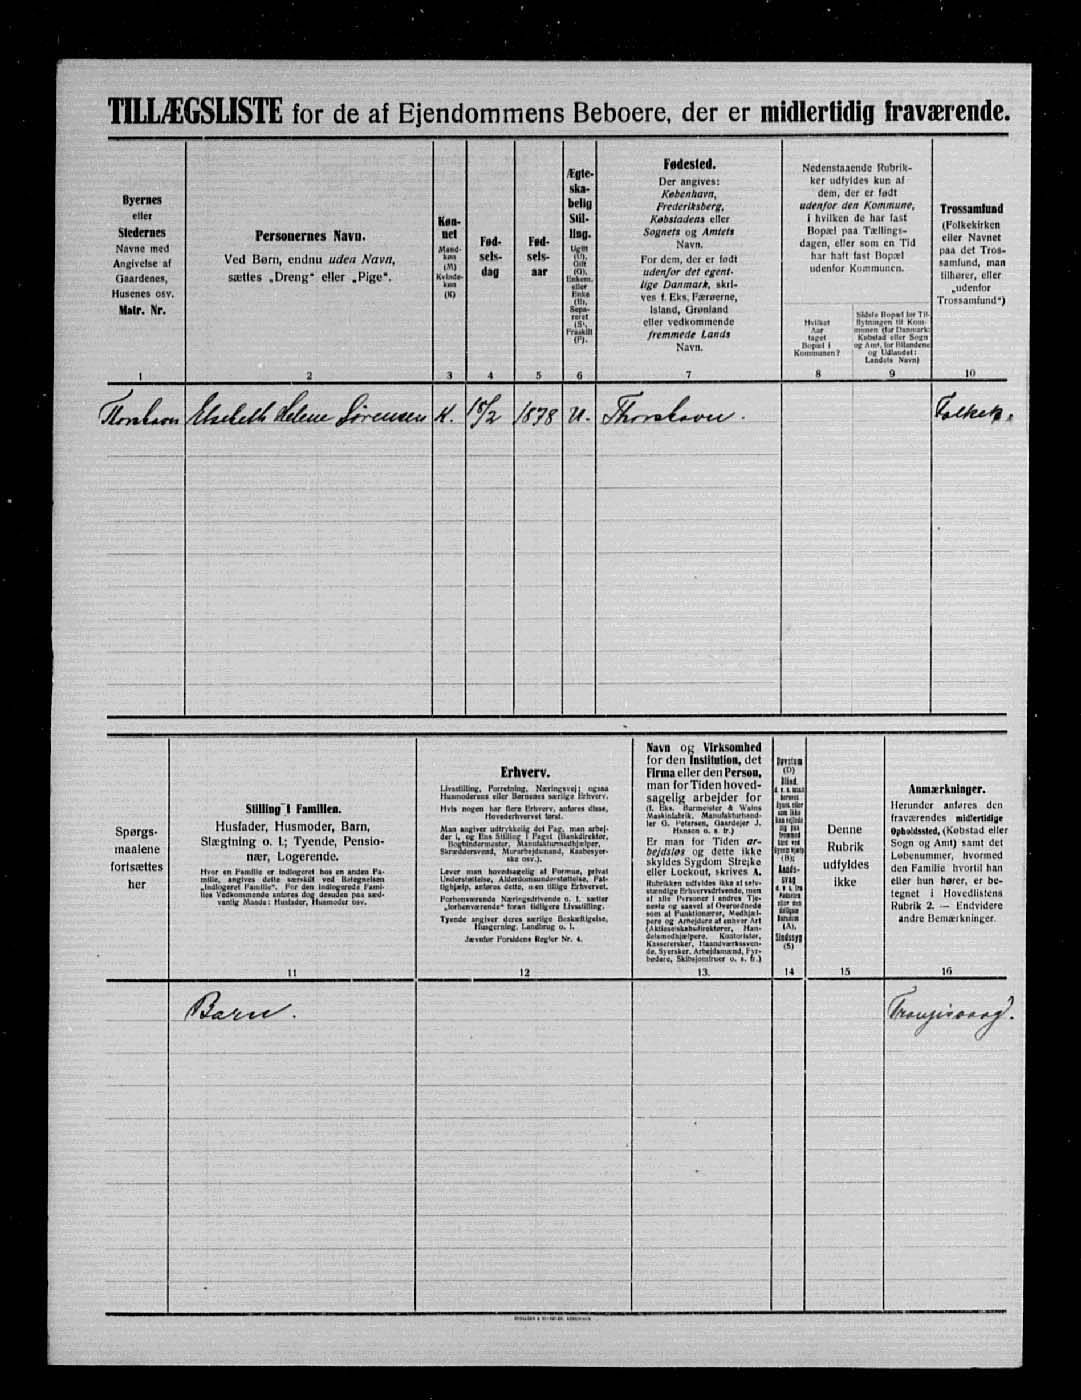 TILLÆGSLISTE for de af Ejendommens Beboere, der er midlertidig fraværende.
Byernes
eller
Stedernes
Navne med
Angivelse af
Gaardenes,
Husenes osv.
Matr. Nr.
1
Personernes Navn.
Ved Børn, endnu uden Navn,
sættes „Dreng“ eller „Pige“.
2
Køn-
net
Mand-
køn
(M)
Kvinde-
køn
(K)
3
Fød-
sels-
dag
4
Fød-
sels-
aar
5
Ægte-
ska-
belig
Stil-
ling.
Ugift
(U),
Gift
(G),
Enkem.
eller
Enke
(E),
Sepa-
reret
(S),
Fraskilt
(F).
6
Fødested.
Der angives:
København,
Frederiksberg,
Købstadens eller
Sognets og Amtets
Navn.
For dem, der er født
udenfor det egent-
lige Danmark, skri-
ves f. Eks. Færøerne,
Island, Grønland
eller vedkommende
fremmede Lands
Navn.
7
Nedenstaaende Rubrik-
ker udfyldes kun af
dem, der er født
udenfor den Kommune,
i hvilken de har fast
Bopæl paa Tællings-
dagen, eller som en Tid
har haft fast Bopæl
udenfor Kommunen.
Hvilket
Aar
taget
Bopæl i
Kommunen?
8
Sidste Bopæl før Til-
flytningen til Kom-
munen (for Danmark:
Købstad eller Sogn
og Amt, for Bilandene
og Udlandet:
Landets Navn)
9
Trossamfund
(Folkekirken
eller Navnet
paa det Tros-
samfund, man
tilhører, eller
„udenfor
Trossamfund“)
10
Thorshavn Elsebeth Helene Sørensen K. 18/2 1878 U. Thorshavn. Folkek.
Spørgs-
maalene
fortsættes
her
Stilling i Familien.
Husfader, Husmoder, Barn,
Slægtning o. l.; Tyende, Pensio-
nær, Logerende.
Hvor en Familie er indlogeret hos en anden Fa-
milie, angives dette særskilt ved Betegnelsen
„indlogeret Familie“. For den indlogerede Fami-
lies Vedkommende anføres dog desuden paa sæd-
vanlig Maade: Husfader, Husmoder osv.
11
Erhverv.
Livsstilling, Forretning, Næringsvej; ogsaa
Husmoderens eller Børnenes særlige Erhverv.
Hvis nogen har flere Erhverv, anføres disse,
Hovederhvervet først.
Man angiver udtrykkelig det Fag, man arbej-
der i, og Ens Stilling i Faget (Bankdirektør,
Bogbindermester, Manufakturmedhjælper,
Skræddersvend, Murarbejdsmand, Kaabesyer-
ske osv.).
Lever man hovedsagelig af Formue, privat
Understøttelse, Alderdomsunderstøttelse, Fat-
tighjælp, anføres dette, men tillige Erhvervet.
Forhenværende Næringsdrivende o. l. sætter
„forhenværende“ foran tidligere Livsstilling.
Tyende angiver deres særlige Beskæftigelse,
Husgerning, Landbrug o. l.
Jævnfør Forsidens Regler Nr. 4.
12
Navn og Virksomhed
for den Institution, det
Firma eller den Person,
man for Tiden hoved-
sagelig arbejder for
(f. Eks. Burmeister & Wains
Maskinfabrik, Manufakturhand-
ler G. Petersen, Gaardejer J.
Hansen o. s. fr.)
Er man for Tiden ar-
bejdsløs og dette ikke
skyldes Sygdom Strejke
eller Lockout, skrives A.
Rubrikken udfyldes ikke af selv-
stændige Erhvervsdrivende, men
af alle Personer i andres Tje-
neste og saavel af Overordnede
som af Funktionærer, Medhjæl-
pere og Arbejdere af enhver Art
(Aktieselskabsdirektører, Han-
delsmedhjælpere, Kontorister,
Kasserersker, Haandværkssven-
de, Syersker, Arbejdsmænd, Fyr-
bødere, Skibsjomfruer o. s. fr.)
13.
Døvstum
(D)
Blind,
(B);
Aands-
svag
(A),
Sindssyg
(S)
14
Denne
Rubrik
udfyldes
ikke
15
Anmærkninger.
Herunder anføres den
fraværendes midlertidige
Opholdssted, (Købstad eller
Sogn og Amt) samt det
Løbenummer, hvormed
den Familie hvortil han
eller hun hører, er be-
tegnet i Hovedlistens
Rubrik 2. — Endvidere
andre Bemærkninger.
16
Barn. Trangisvaag.